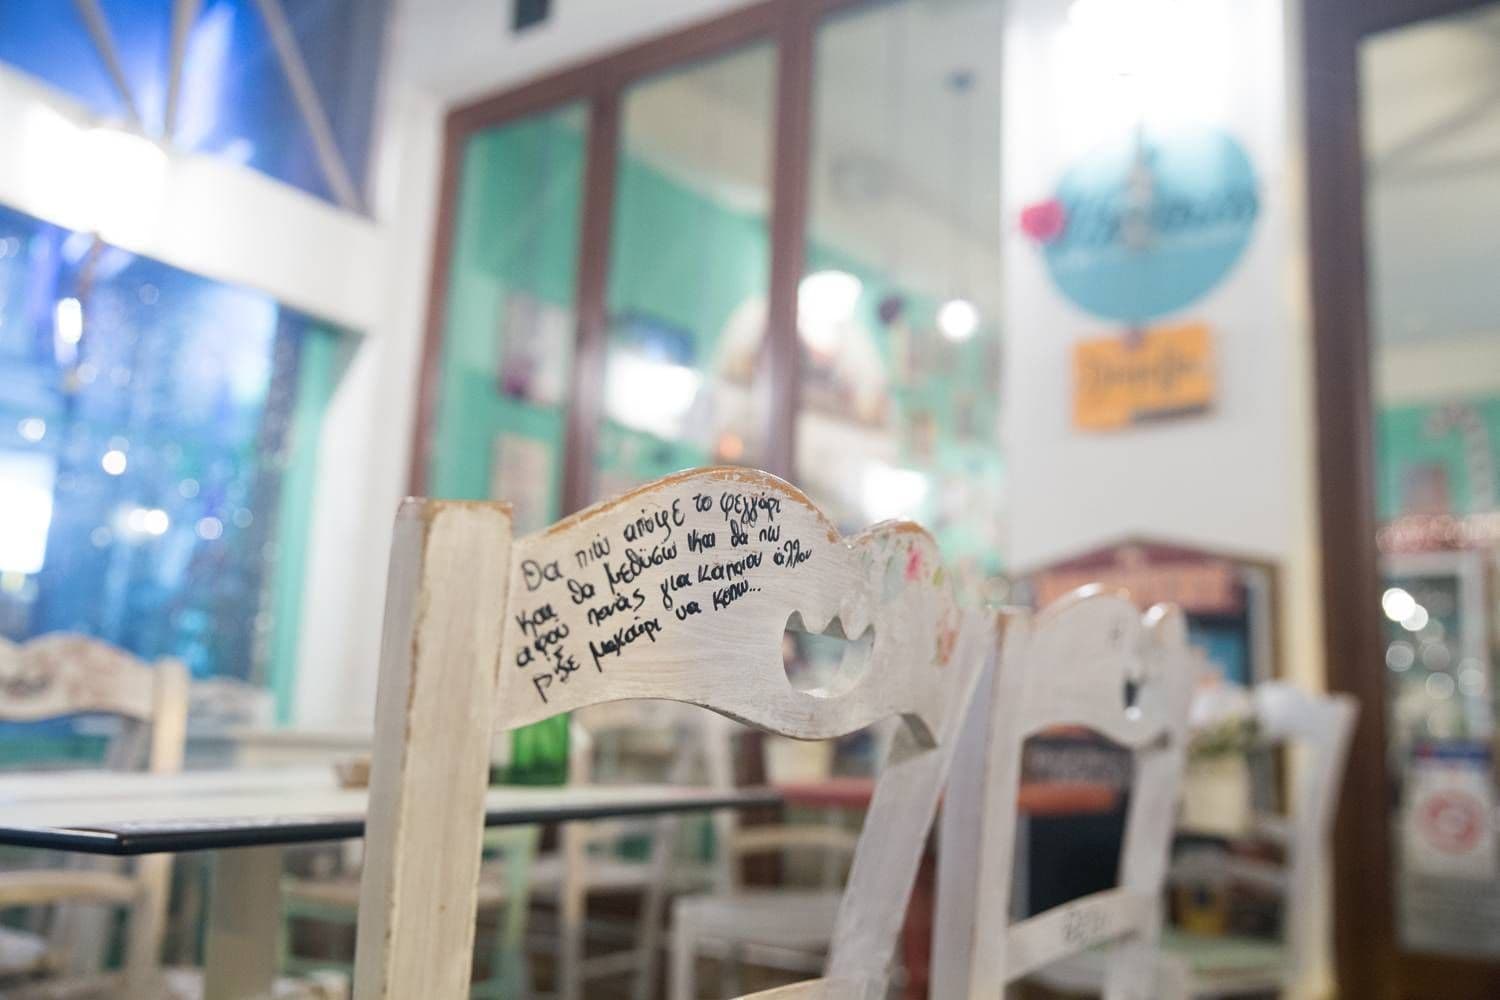 Θα πιώ απόψε το φεγγάρι
και θα μεθύσω και θα πω
αφού πονάς για κάποιον άλλον
ρίξε μαχαίρι να κοπώ...